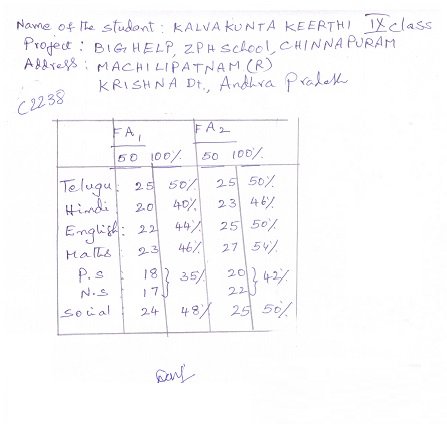 Name of the student : KALVAKUNTA KEERTHI IX class
Project : BIG HELP, ZPH School, CHINNAPURAM
Address : MACHILIPATNAM (R)
KRISHNA Dt., Andhra Pradesh
C2238
FA1 FA2
50 100% 50 100%
Telugu : 25 50% 25 50%
Hindi 20 40% 23 46%
English : 22 44% 25 50%
Maths 23 46% 27 54%
P.S : 18 } 35% 20 } 42%
N.S 17 22
Social 24 48% 25 50%